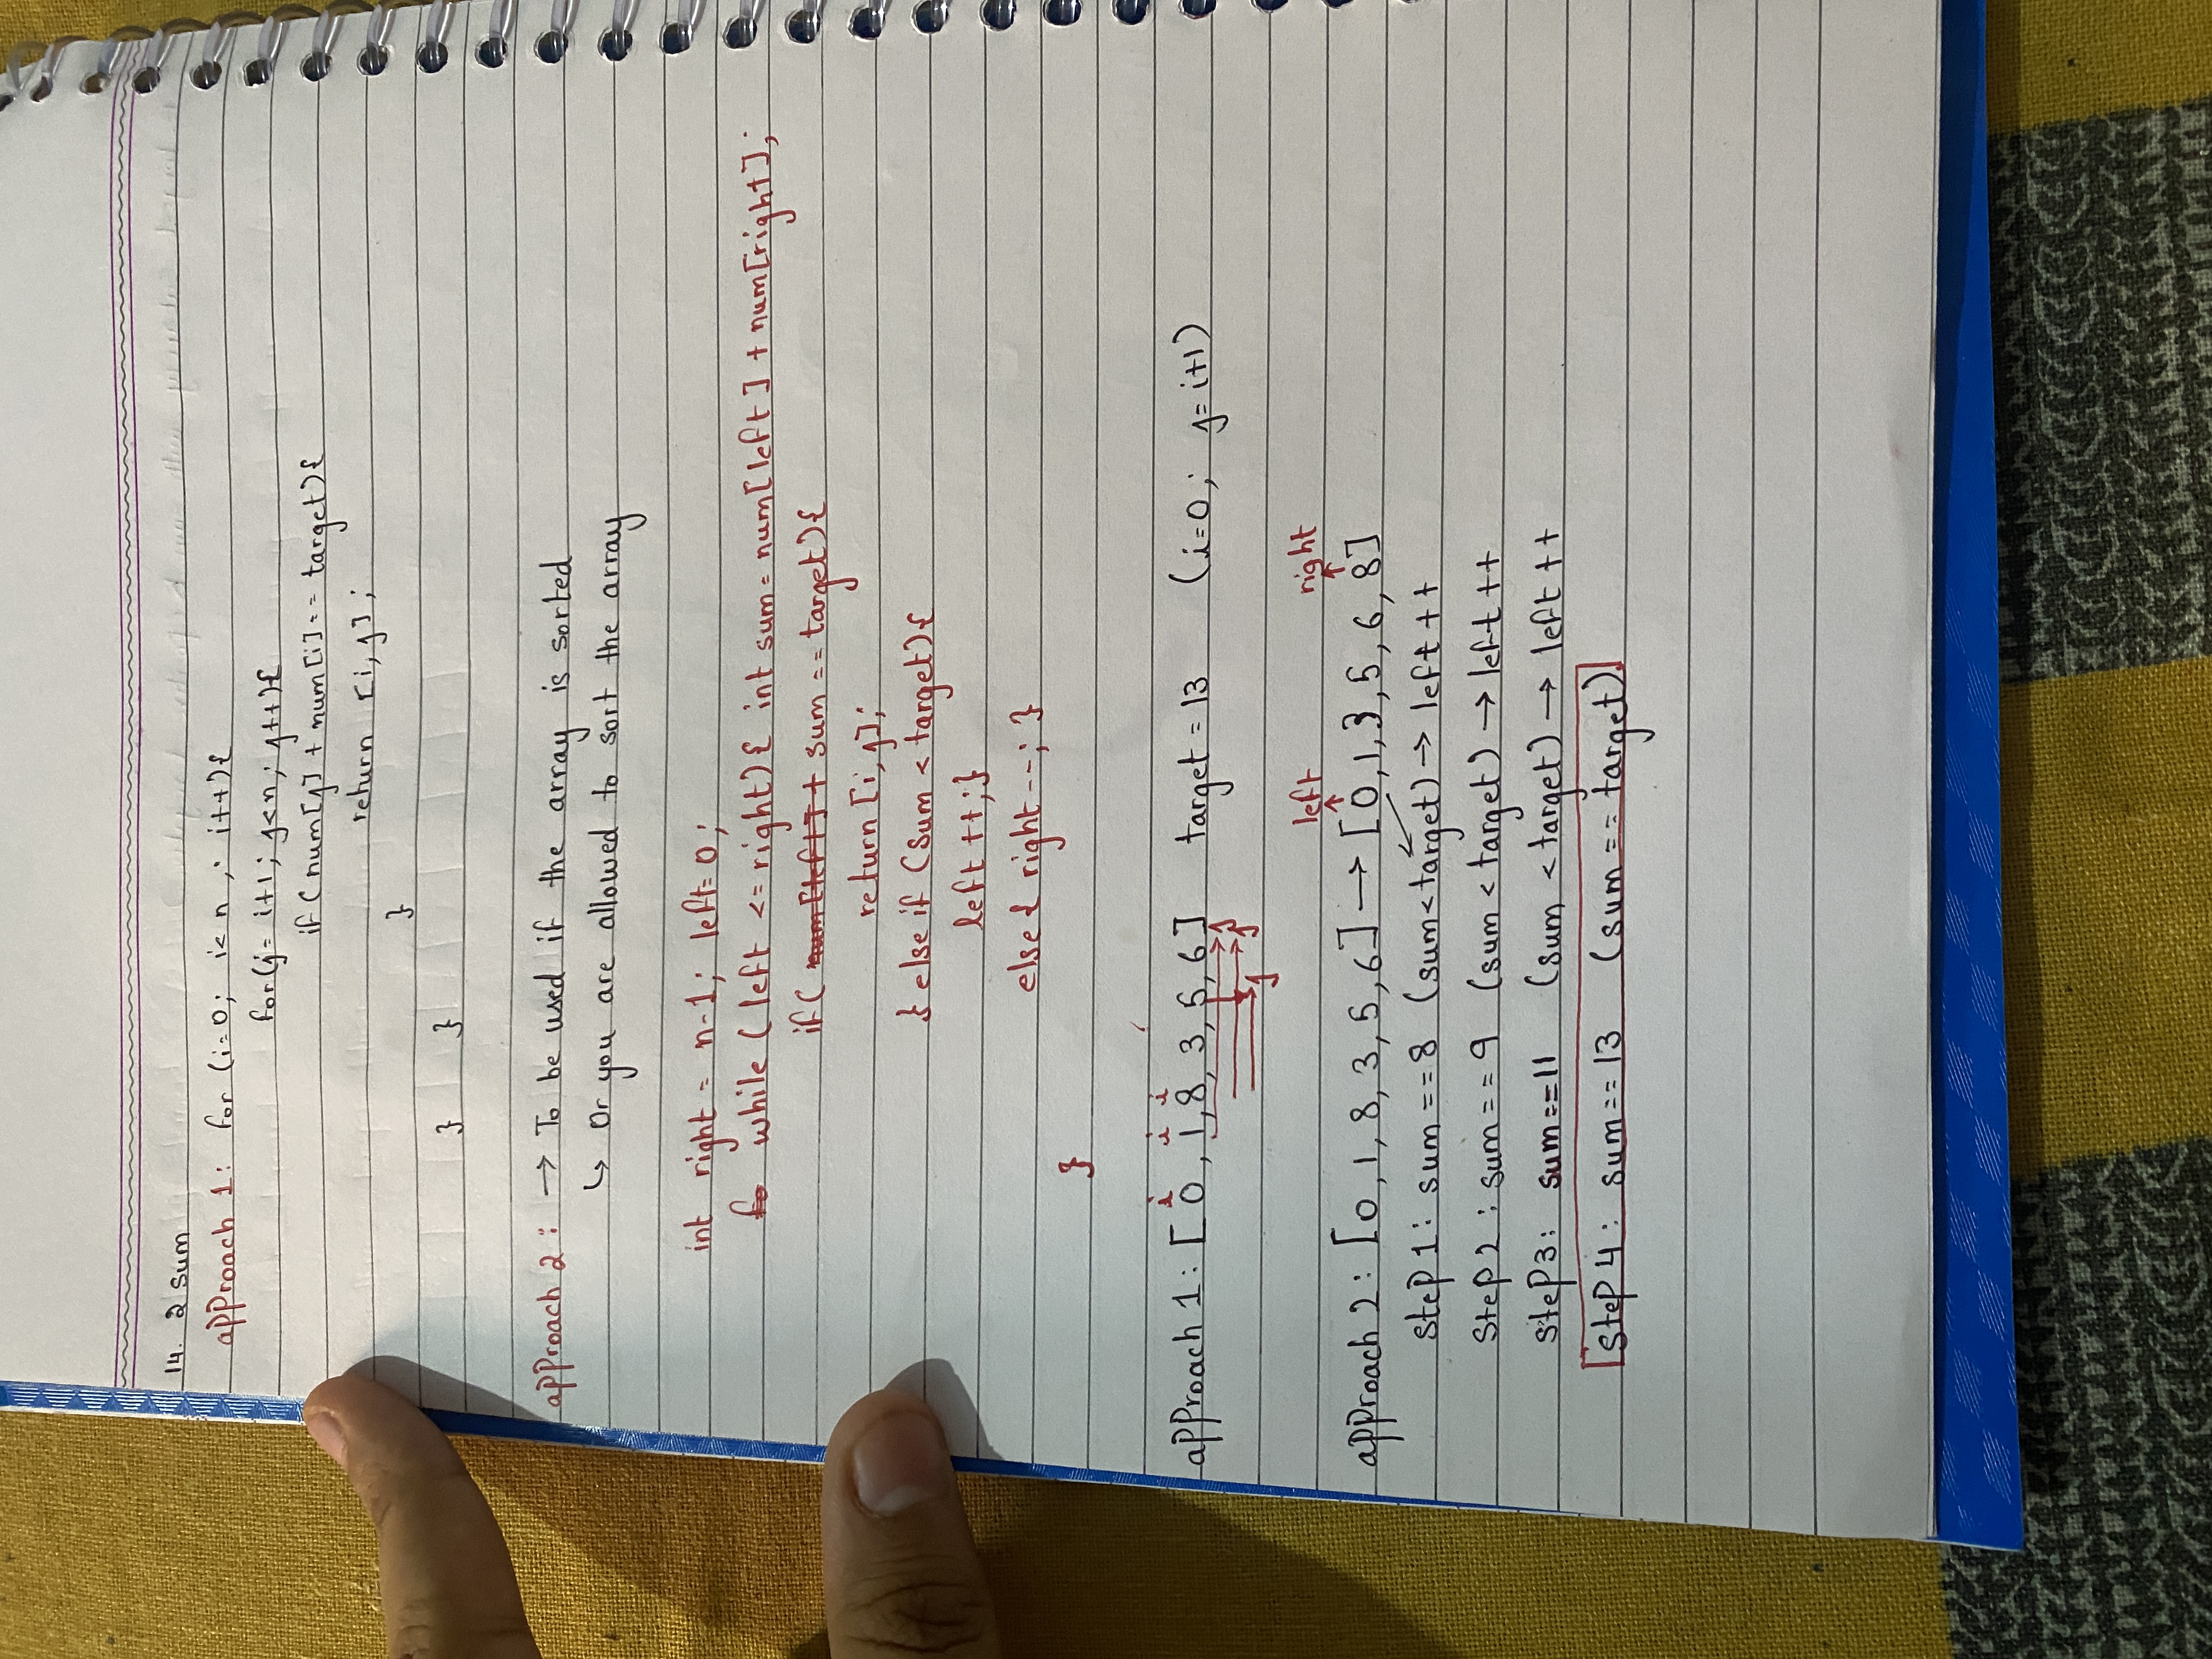 14. 2 sum
approach 1: for (i=0; i< n ; i++){
for(j= i+1; j<n; j++){
if ( num[j] + num[i] == target){
return [i, j];
}
} }
approach 2: → To be used if the array is sorted
↳ Or you are allowed to sort the array
int right = n-1; left=0;
while ( left <= right){ int sum= num[left] + num[right];
if ( num[left] + sum == target){
return [i, j];
} else if (sum < target){
left ++;}
else { right--; }
}
i i i
approach 1: [ 0, 1, 8, 3, 5, 6] target = 13 (i=0; j= i+1)
j
j
j
left right
approach 2: [0, 1, 8, 3, 5, 6] → [0, 1, 3, 5, 6, 8]
step 1: sum == 8 (sum<target) → left ++
Step 2: sum == 9 (sum < target) → left ++
Step 3: sum==11 (sum < target) → left ++
step 4: sum== 13 (sum == target)